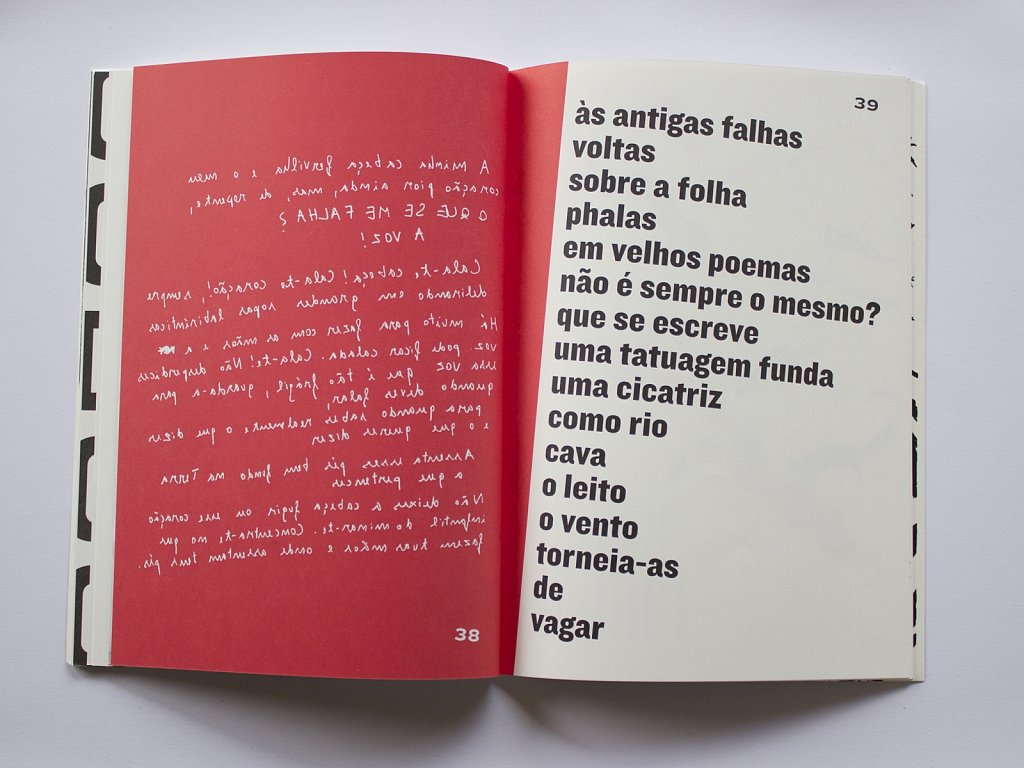 A minha cabeça fervilha e o meu
coração pior ainda, mas, de repente,
O QUE SE ME FALHA?
A VOZ!
Cala-te, cabeça! Cala-te coração!, sempre
delirando em grandes sopas labirínticas
Há muito para fazer com as mãos e a
voz pode ficar calada. Cala-te! Não desperdices
essa voz que é tão frágil, guarda-a para
quando deves falar,
para quando sabes realmente o que dizer
e o que queres dizer
Assenta esses pés bem fundo na Terra
a que pertences
Não deixes a cabeça fugir ou esse coração
infantil dominar-te. Concentra-te no que
fazem tuas mãos e onde assentam teus pés.
38
39
às antigas falhas
voltas
sobre a folha
phalas
em velhos poemas
não é sempre o mesmo?
que se escreve
uma tatuagem funda
uma cicatriz
como rio
cava
o leito
o vento
torneia-as
de
vagar